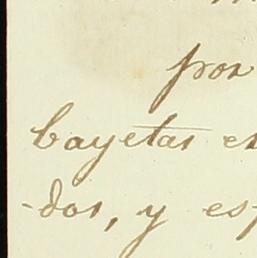 por
bayetas e
-dos, y es